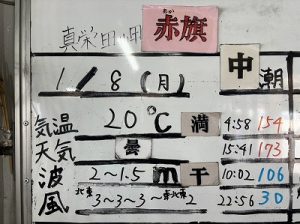 真栄田岬 赤旗
1/8(月) 中潮
気温 20℃ 満 4:58 154
天気 曇 15:41 173
波 2〜1.5m 干 10:02 106
風 北東3〜3〜3〜東北東2 22:56 30